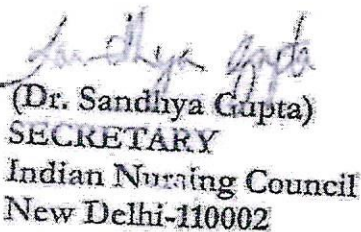 Sandhya Gupta
(Dr. Sandhya Gupta)
SECRETARY
Indian Nursing Council
New Delhi-110002